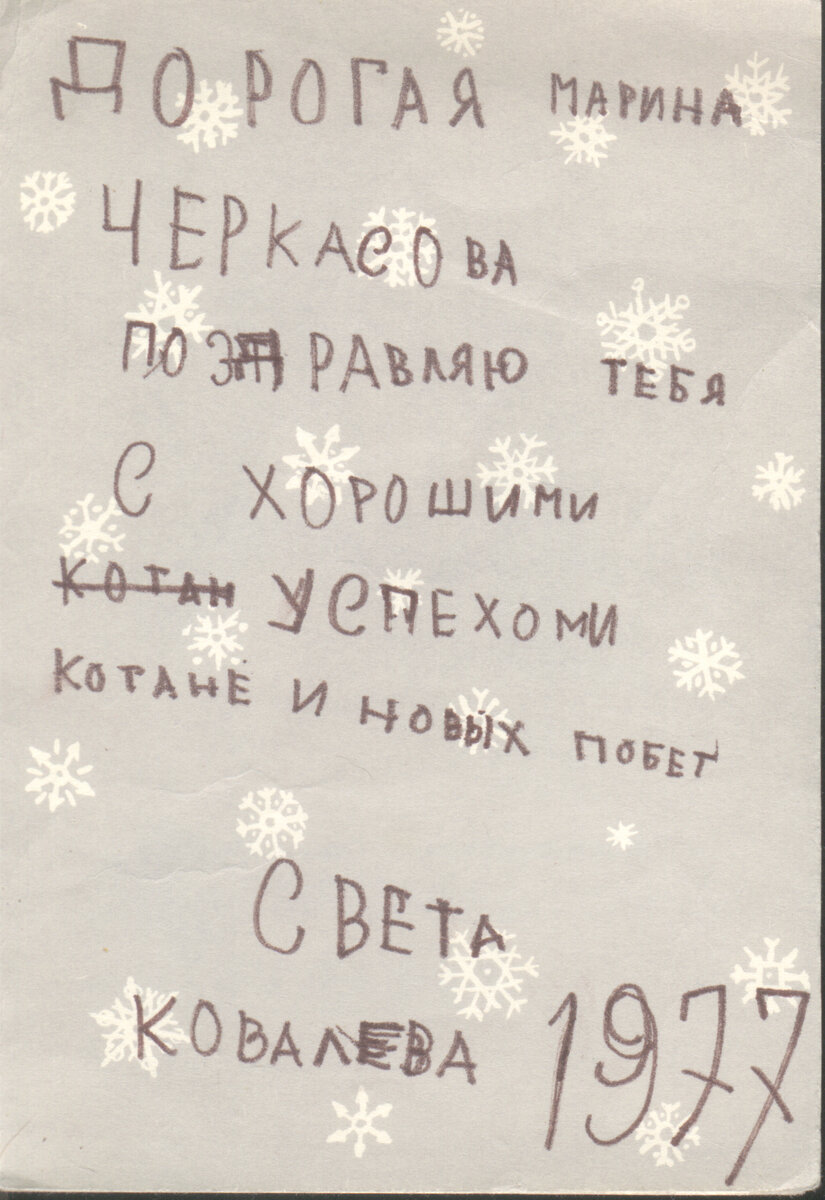 ДОРОГАЯ МАРИНА
ЧЕРКАСОВА
ПОЗДРАВЛЯЮ ТЕБЯ
С ХОРОШИМИ
КОТАН УСПЕХОМИ
КОТАНЕ И НОВЫХ ПОБЕТ
СВЕТА
КОВАЛЕВА 1977